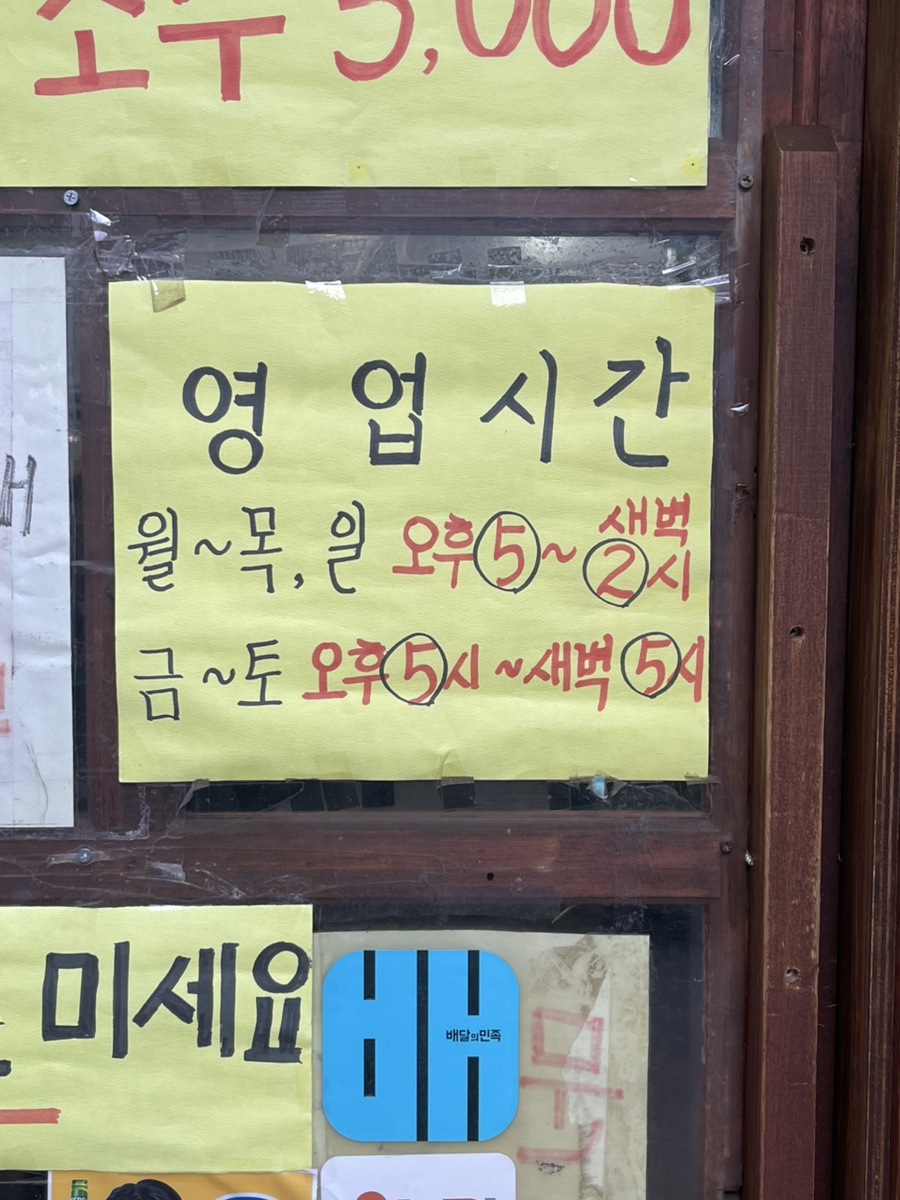 소주 5,000
영 업 시 간
월~목, 일 오후 5~ 새벽 2시
금~토 오후 5시 ~새벽 5시
미세요
배달의민족